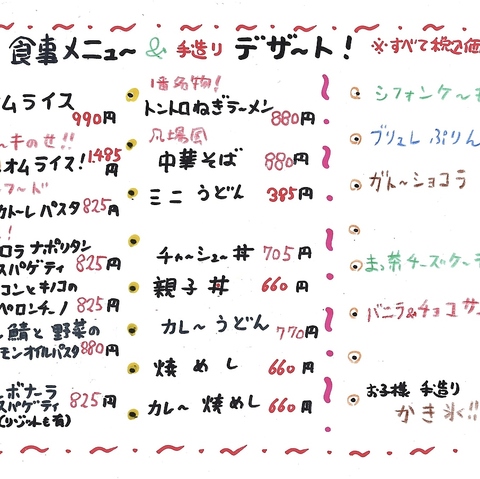 食事メニュー & 手造り デザート! ※すべて税込価
オムライス
990円
ーキのせ!!
オムライス! 1,485円
フード
カトーレ パスタ 825円
!
ロラ ナポリタン
スパゲティ 825円
コンとキノコの
ペロンチーノ 825円
鯖と野菜の
モンオイルパスタ 880円
ボナーラ
スパゲティ 825円
(リゾットも有)
1番名物!
トントロねぎラーメン 880円
中華そば 880円
ミニ うどん 385円
チャーシュー丼 705円
親子丼 660円
カレーうどん 770円
焼めし 660円
カレー焼めし 660円
シフォンケー
ブリュレ ぷりん
ガトーショコラ
まっ茶チーズケーキ
バニラ&チョコサン
お子様 手造り
かき氷!!